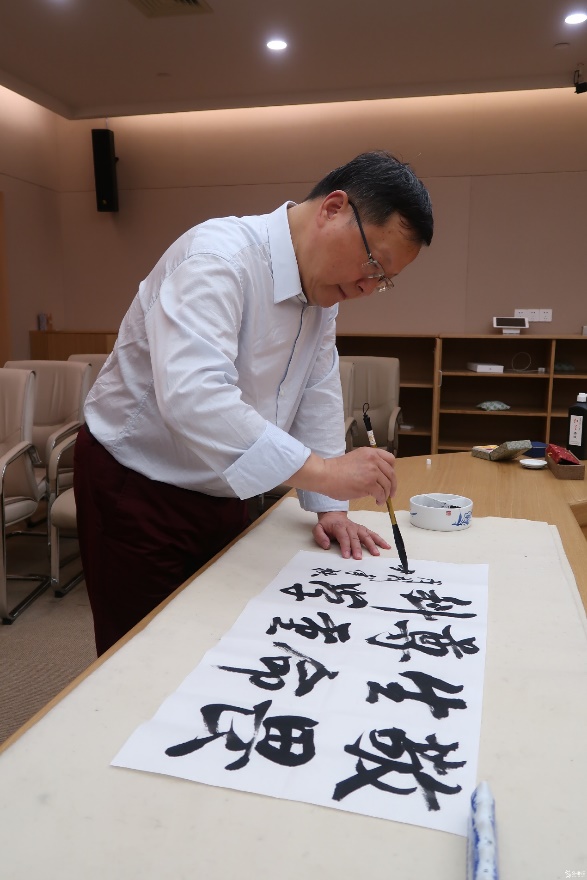 敬畏
生命
尊重
科学